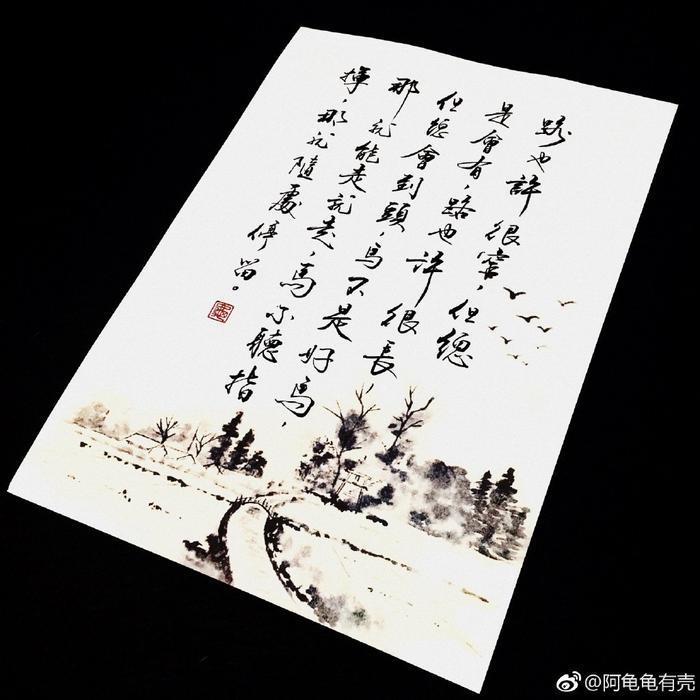 路也許很窄，但總
是會有，路也許很長，
但總會到頭，馬不是好馬，
那就能走就走，馬不聽指
揮，那就隨處停留。
@阿龟龟有壳